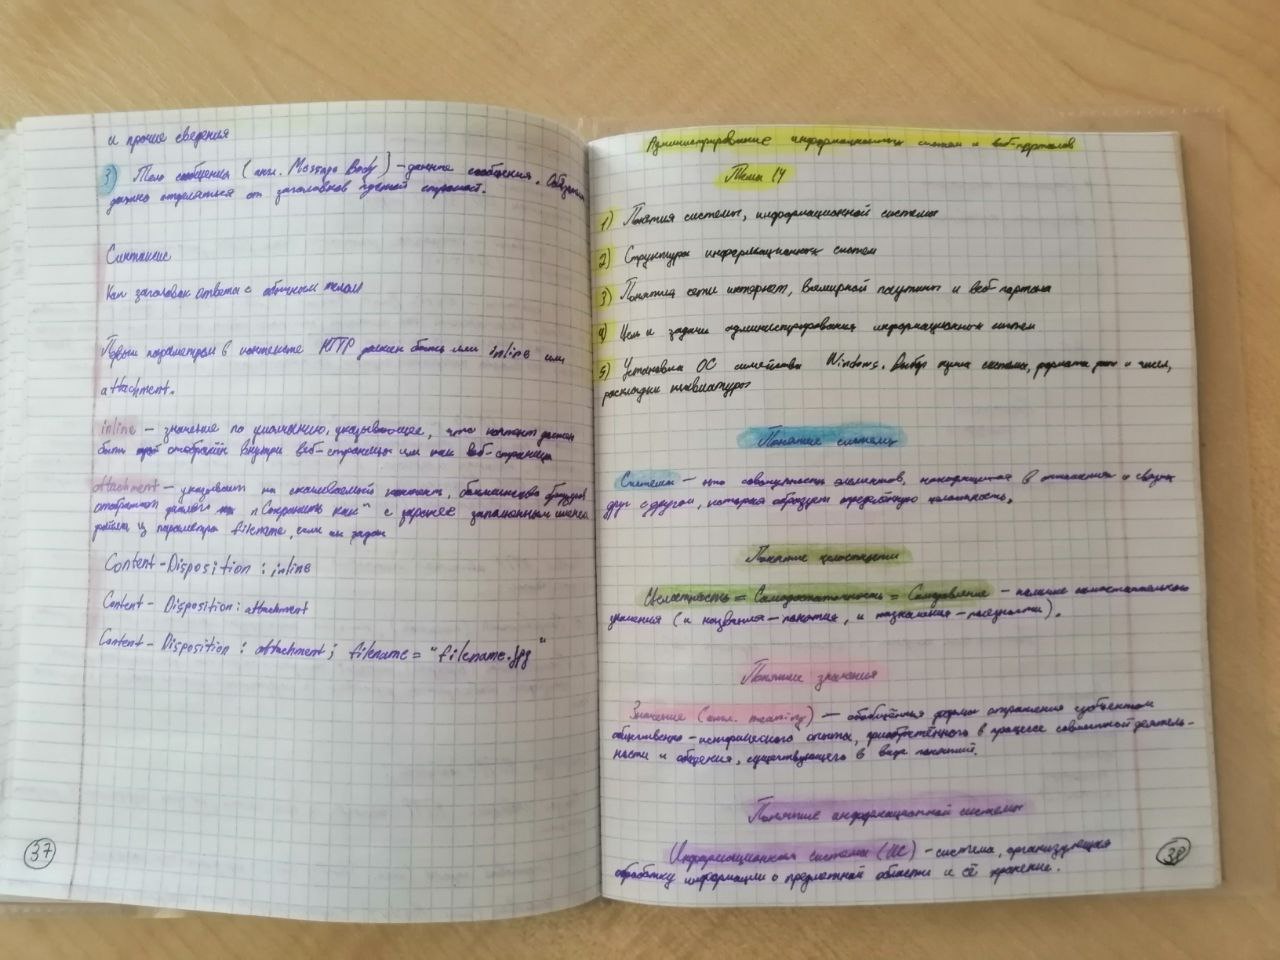 и прочие сведения
3) Тело сообщения (англ. Message Body) – данные сообщения. Обязательно
должно отделяться от заголовков пустой строкой.
Синтаксис
Как заголовок ответа с обычным телом
Первым параметром в контексте HTTP должен быть или inline или
attachment.
inline – значение по умолчанию, указывающее, что контент должен
быть отображён внутри веб-страницы или как веб-страница
attachment – указывает на скачиваемый контент, большинство браузеров
отображают диалог "Сохранить как" с заранее заполненным именем
файла из параметра filename, если он задан
Content-Disposition: inline
Content-Disposition: attachment
Content-Disposition: attachment; filename="filename.jpg"
37
Администрирование информационных систем и веб-порталов
Тема 14
1) Понятия системы, информационной системы
2) Структура информационных систем
3) Понятия сети интернет, всемирной паутины и веб-портала
4) Цель и задачи администрирования информационных систем
5) Установка ОС семейства Windows. Выбор типа системы, формата дат и чисел,
раскладки клавиатуры
Понятие системы
Система – это совокупность элементов, находящихся в отношениях и связях
друг с другом, которая образует определённую целостность.
Понятие целостности
Целостность = Самодостаточность = Самоуправление –
Понятие значения
Значение (англ. meaning) – обобщённая форма отражения субъектом
общественно-исторического опыта, приобретённого в процессе совместной деятель-
ности и общения, существующего в виде понятий.
Понятие информационной системы
Информационная система (ИС) – система, организующая
обработку информации о предметной области и её хранение.
38